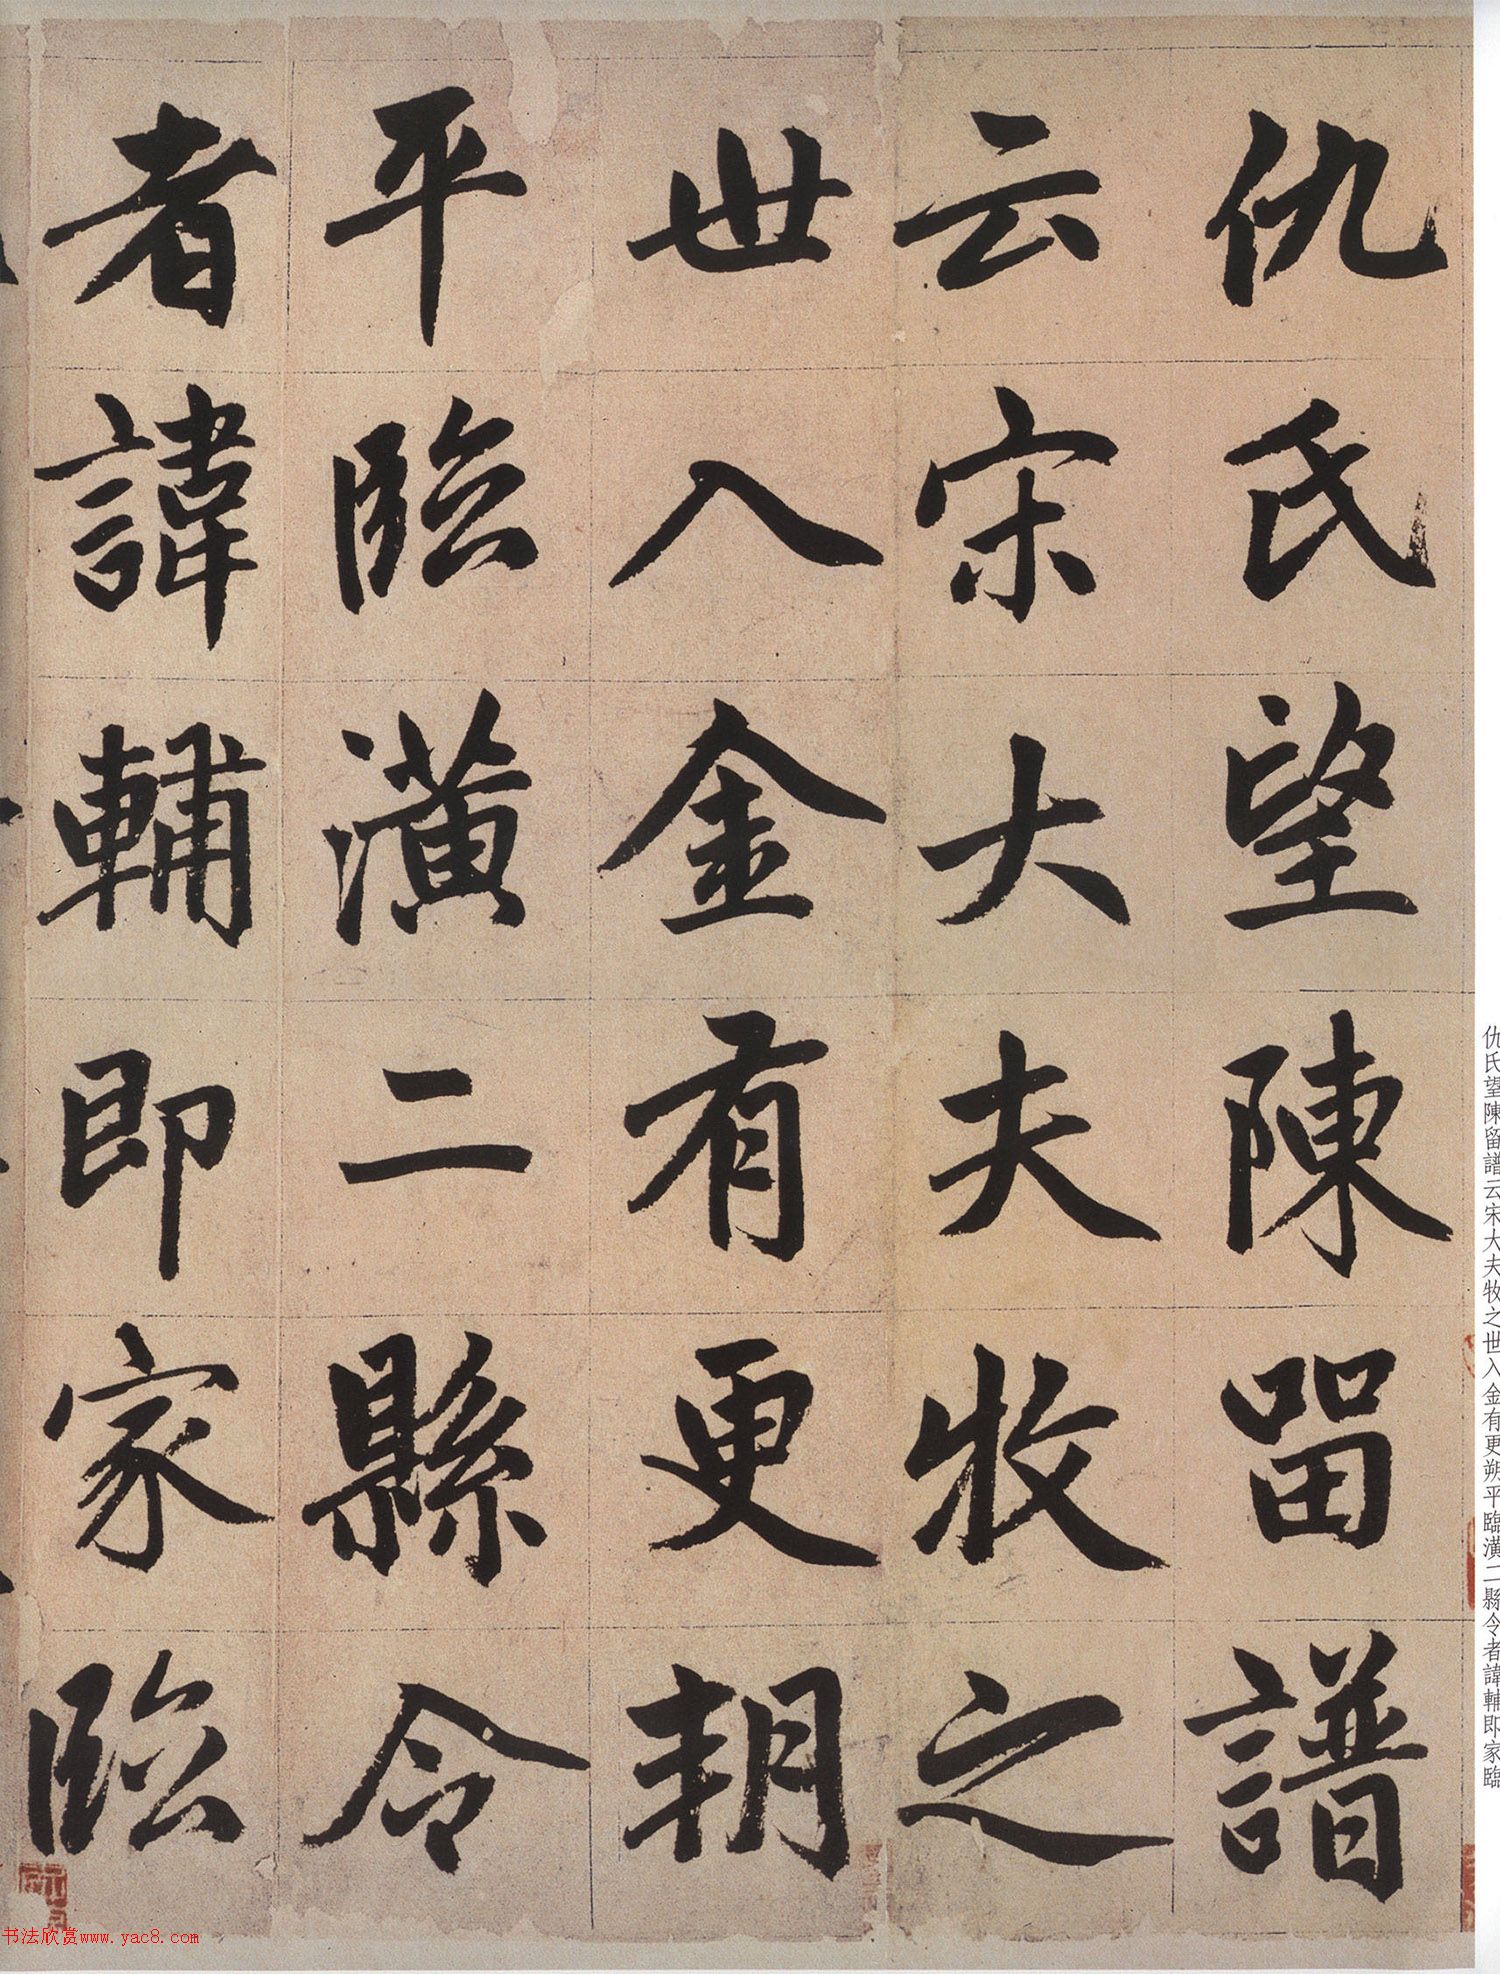 仇氏望陳留譜
云宋大夫牧之
世入金有更朔
平臨潢二縣令
者諱輔即家臨
仇氏望陳留譜云宋大夫牧之世入金有更朔平臨潢二縣令者諱輔即家臨
书法欣赏www.yac8.com